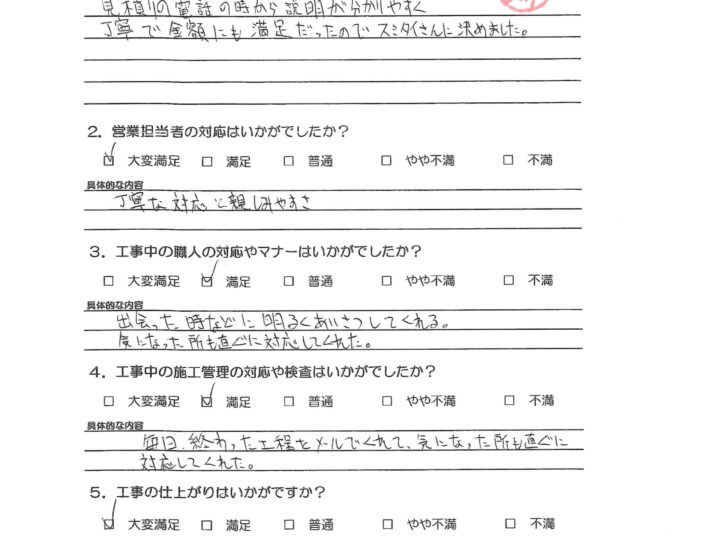 見積りの電話の時から説明が分かりやすく
丁寧で金額にも満足だったのでスミタイさんに決めました。
2. 営業担当者の対応はいかがでしたか?
☑ 大変満足 □ 満足 □ 普通 □ やや不満 □ 不満
具体的な内容
丁寧な対応と親しみやすさ
3. 工事中の職人の対応やマナーはいかがでしたか?
□ 大変満足 ☑ 満足 □ 普通 □ やや不満 □ 不満
具体的な内容
出会った時などに明るくあいさつしてくれる。
気になった所も直ぐに対応してくれた。
4. 工事中の施工管理の対応や検査はいかがでしたか?
□ 大変満足 ☑ 満足 □ 普通 □ やや不満 □ 不満
具体的な内容
毎日、終わった工程をメールでくれて、気になった所も直ぐに
対応してくれた。
5. 工事の仕上がりはいかがですか?
☑ 大変満足 □ 満足 □ 普通 □ やや不満 □ 不満